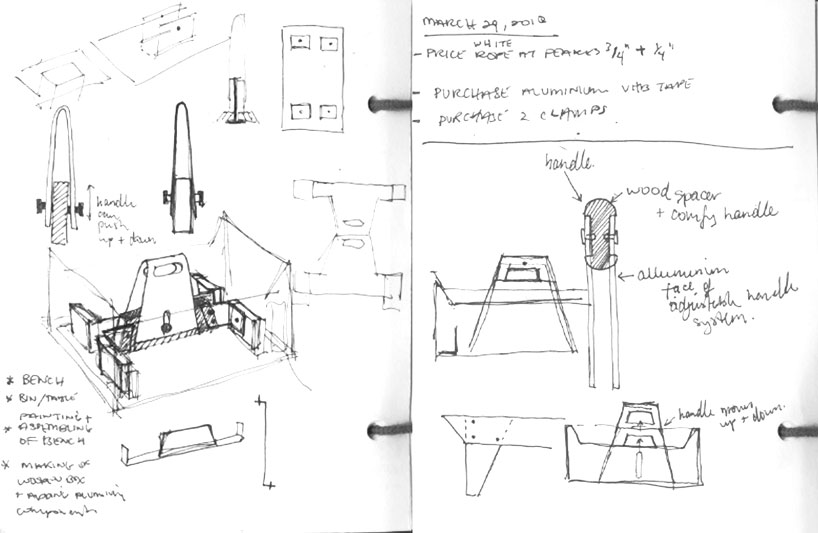 handle
can
push
up + down
* BENCH
* BIN/TABLE
PAINTING +
* ASSEMBLING
OF BENCH
* MAKING OF
WOODEN BOX
+
components
MARCH 29, 201
WHITE
- PRICE ROPE AT PEAKES 3/4" + 1/4"
- PURCHASE ALUMINIUM TAPE
- PURCHASE 2 CLAMPS.
handle.
wood spacer
+ comfy handle
alluminium
face of
adjustable handle
system.
handle moves
up + down.